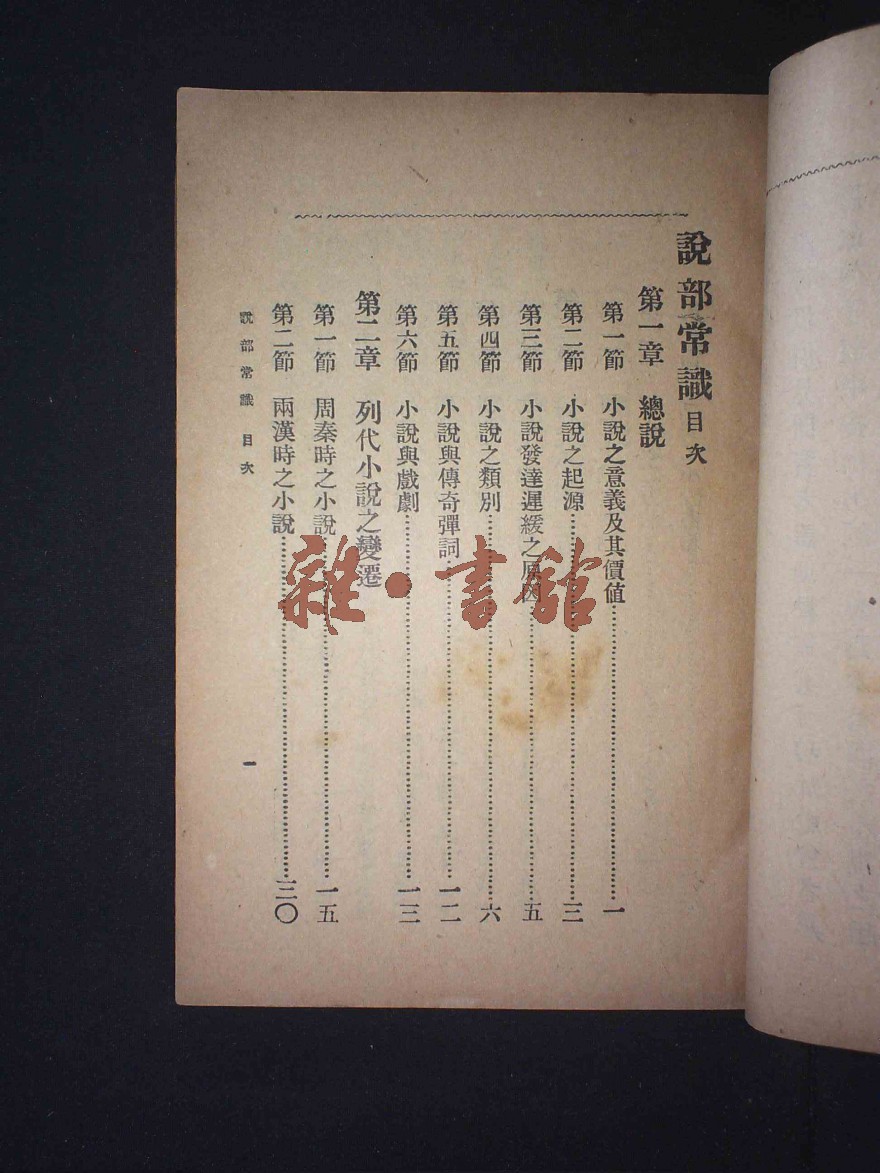 說部常識 目次
第一章 總說
第一節 小說之意義及其價值……一
第二節 小說之起源……三
第三節 小說發達遲緩之原因……五
第四節 小說之類別……六
第五節 小說與傳奇彈詞……一二
第六節 小說與戲劇……一三
第二章 列代小說之變遷
第一節 周秦時之小說……一五
第二節 兩漢時之小說……三〇
說部常識 目次 一
雜·書館